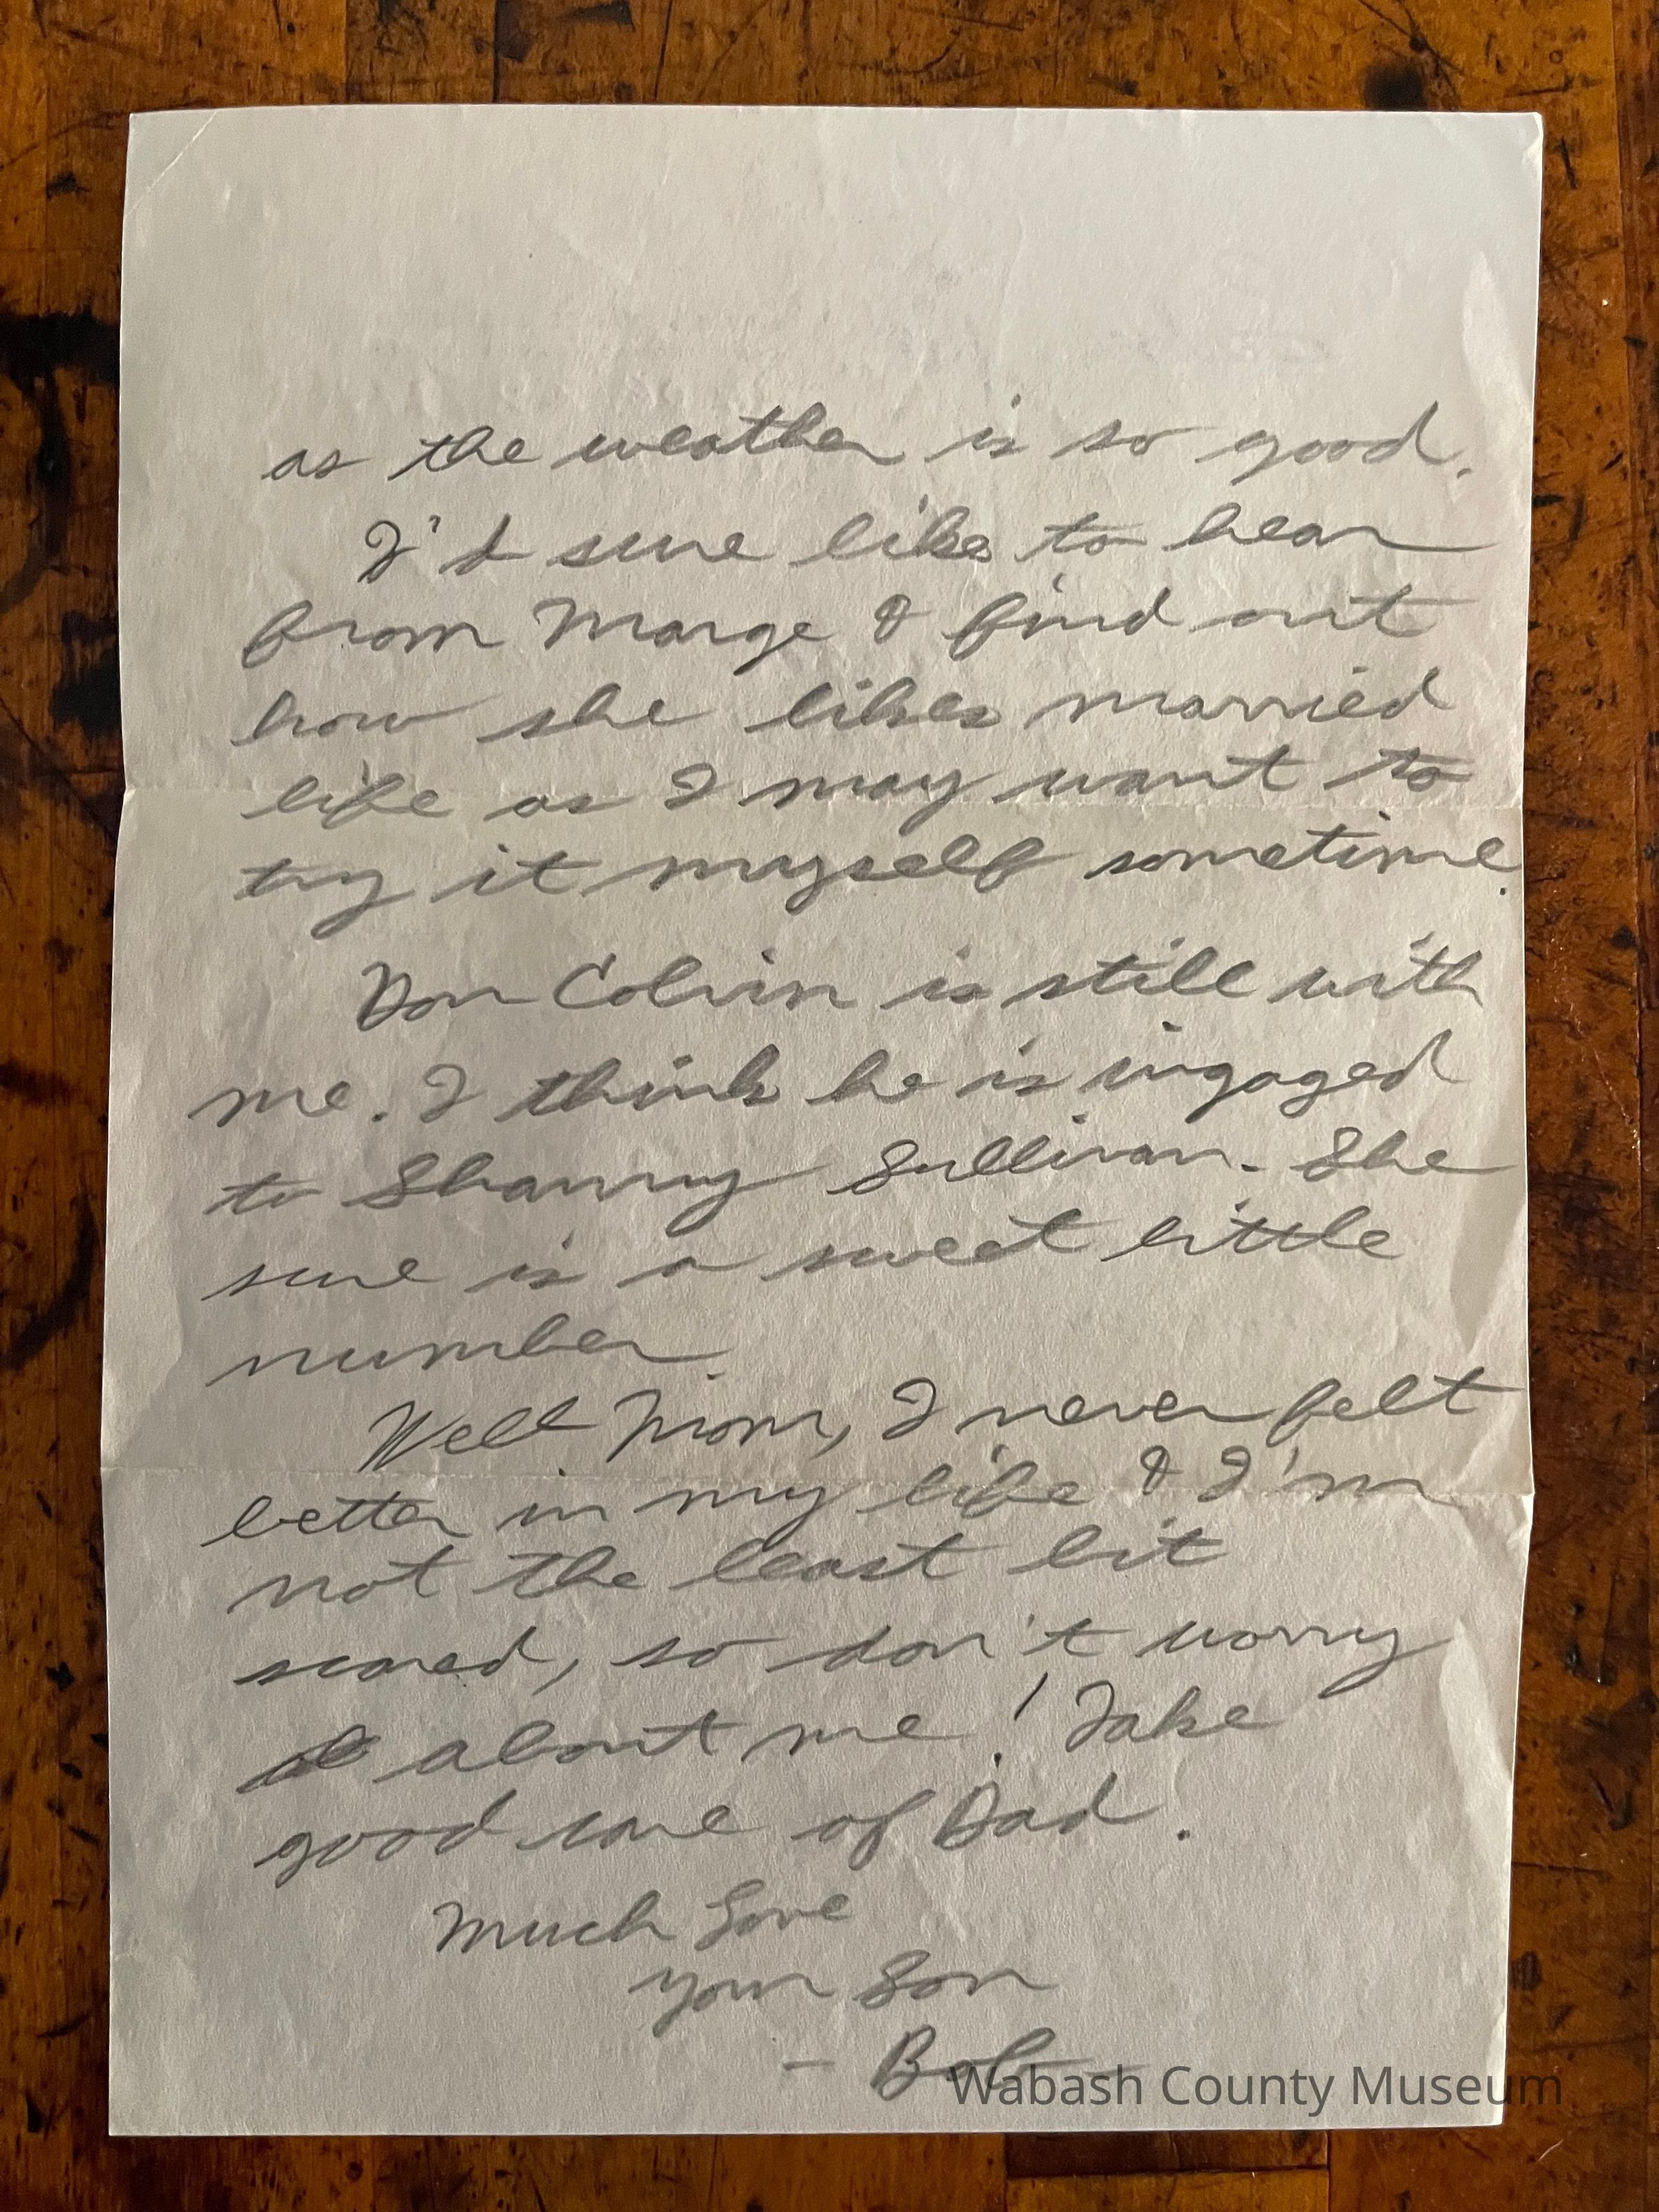 as the weather is so good.
I'd sure like to hear
from Marge & find out
how she likes married
life as I may want to
try it myself sometime.
Don Colvin is still with
me. I think he is ingaged
to Shanny Sullivan. She
sure is a sweet little
number.
Well Mom, I never felt
better in my life & I'm
not the least bit
scared, so don't worry
about me! Take
good care of Dad.
Much Love
your Son
- Bob
Wabash County Museum